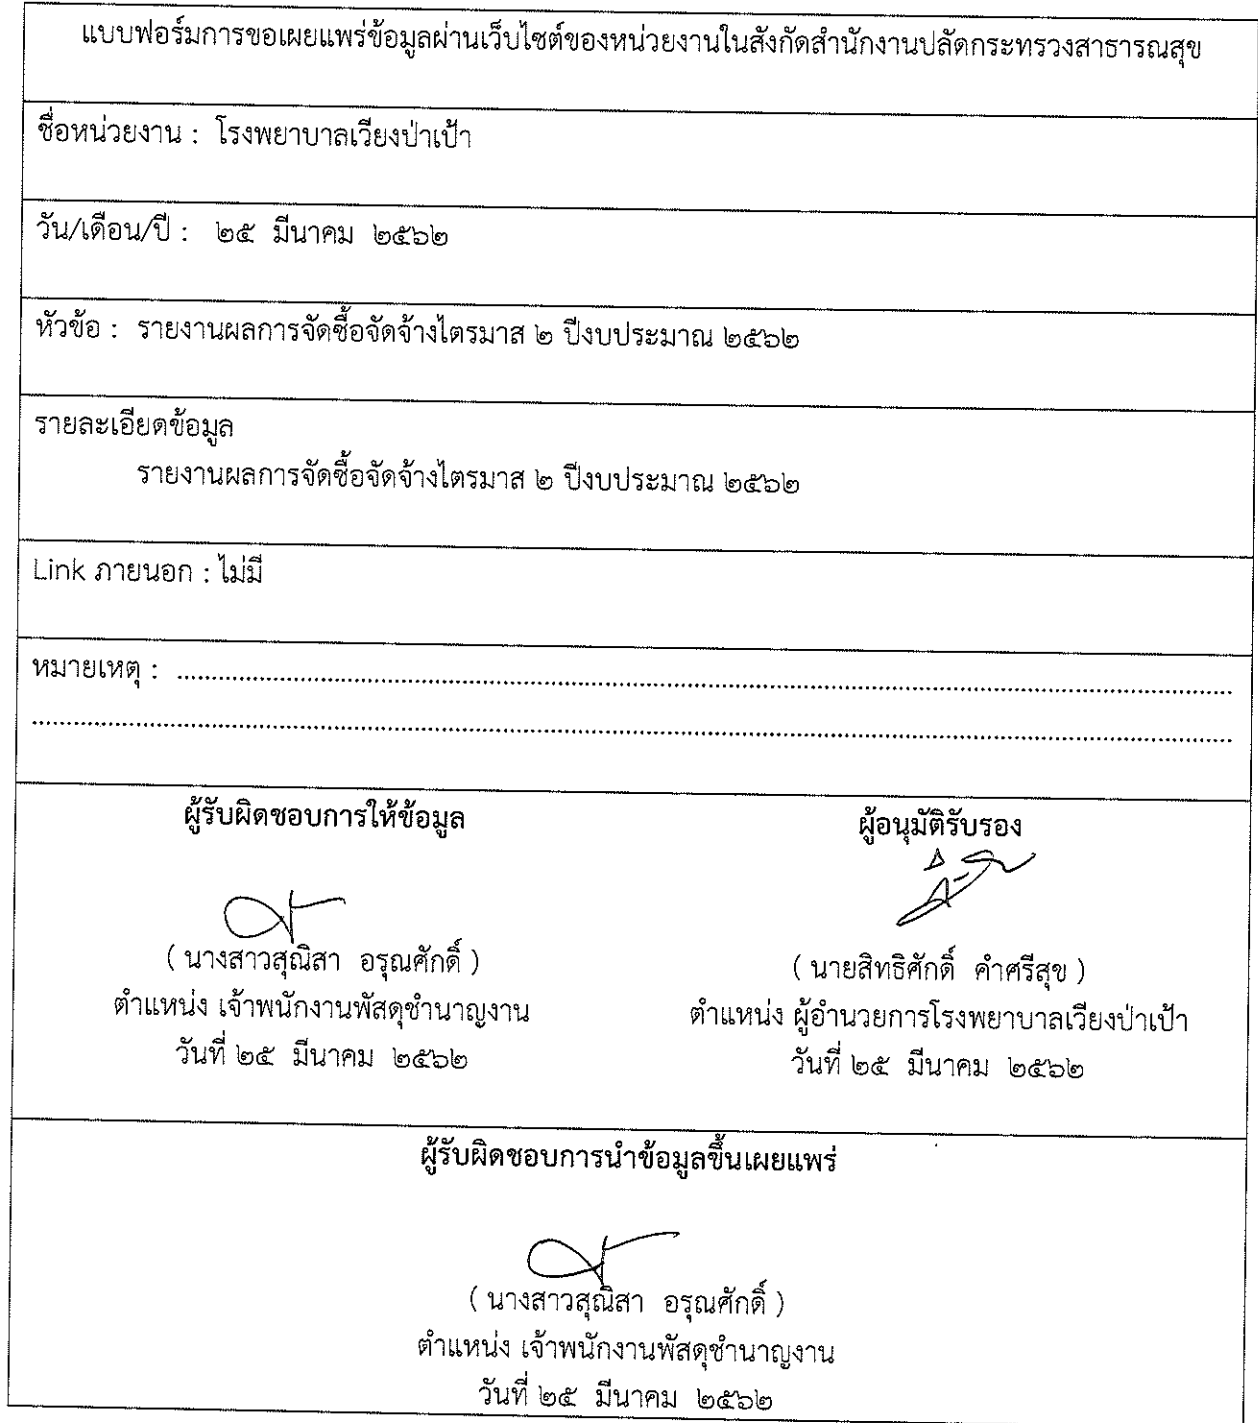 แบบฟอร์มการขอเผยแพร่ข้อมูลผ่านเว็บไซต์ของหน่วยงานในสังกัดสำนักงานปลัดกระทรวงสาธารณสุข
ชื่อหน่วยงาน : โรงพยาบาลเวียงป่าเป้า
วัน/เดือน/ปี : ๒๕ มีนาคม ๒๕๖๒
หัวข้อ : รายงานผลการจัดซื้อจัดจ้างไตรมาส ๒ ปีงบประมาณ ๒๕๖๒
รายละเอียดข้อมูล
รายงานผลการจัดซื้อจัดจ้างไตรมาส ๒ ปีงบประมาณ ๒๕๖๒
Link ภายนอก : ไม่มี
หมายเหตุ : ........................................................................
........................................................................
ผู้รับผิดชอบการให้ข้อมูล
( นางสาวสุณิสา อรุณศักดิ์ )
ตำแหน่ง เจ้าพนักงานพัสดุชำนาญงาน
วันที่ ๒๕ มีนาคม ๒๕๖๒
ผู้อนุมัติรับรอง
( นายสิทธิศักดิ์ คำศรีสุข )
ตำแหน่ง ผู้อำนวยการโรงพยาบาลเวียงป่าเป้า
วันที่ ๒๕ มีนาคม ๒๕๖๒
ผู้รับผิดชอบการนำข้อมูลขึ้นเผยแพร่
( นางสาวสุณิสา อรุณศักดิ์ )
ตำแหน่ง เจ้าพนักงานพัสดุชำนาญงาน
วันที่ ๒๕ มีนาคม ๒๕๖๒